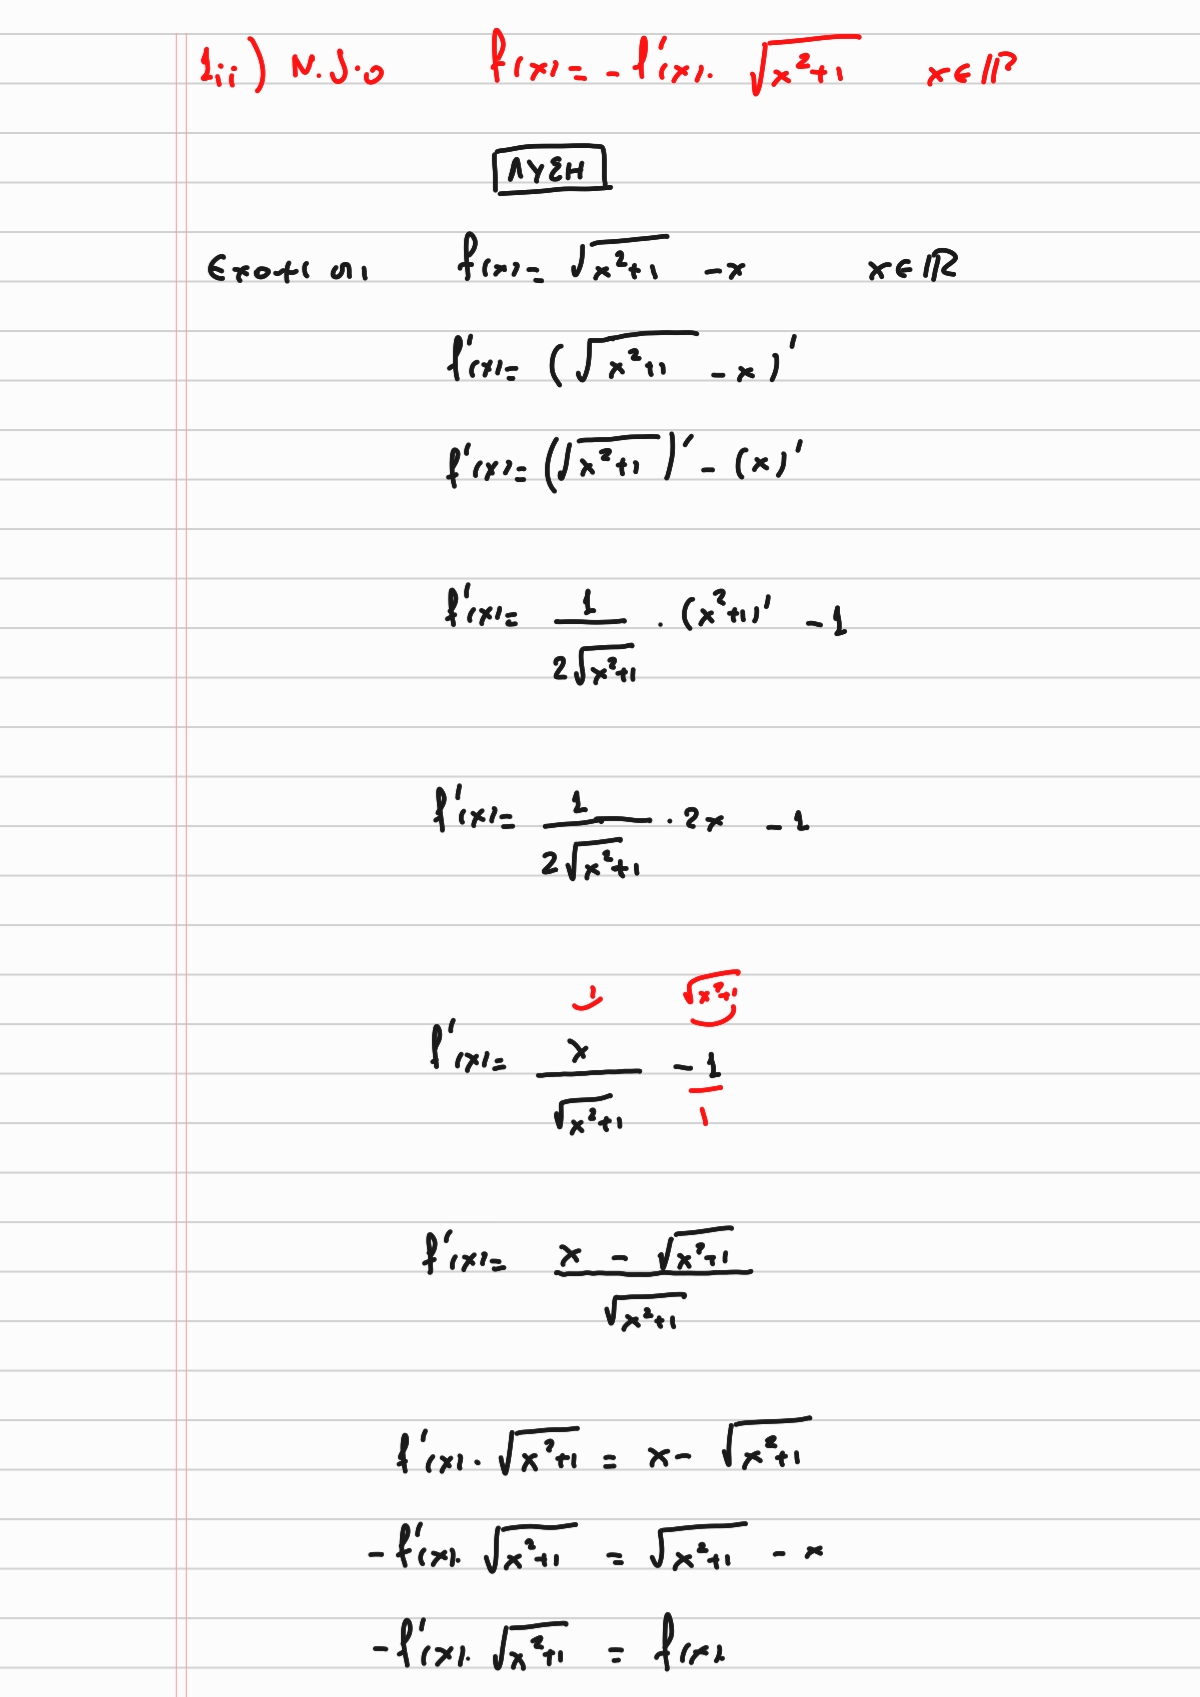 1ii) N.δ.ο f(x) = -f'(x). √(x²+1) x∈ℝ
ΛΥΣΗ
Εχοτι οτι f(x) = √(x²+1) - x x∈ℝ
f'(x) = (√(x²+1) - x)'
f'(x) = (√(x²+1))' - (x)'
f'(x) = 1/(2√(x²+1)) · (x²+1)' - 1
f'(x) = 1/(2√(x²+1)) · 2x - 1
1 √(x²+1)
f'(x) = x/√(x²+1) - 1/1
f'(x) = (x - √(x²+1))/√(x²+1)
f'(x) · √(x²+1) = x - √(x²+1)
-f'(x). √(x²+1) = √(x²+1) - x
-f'(x). √(x²+1) = f(x)